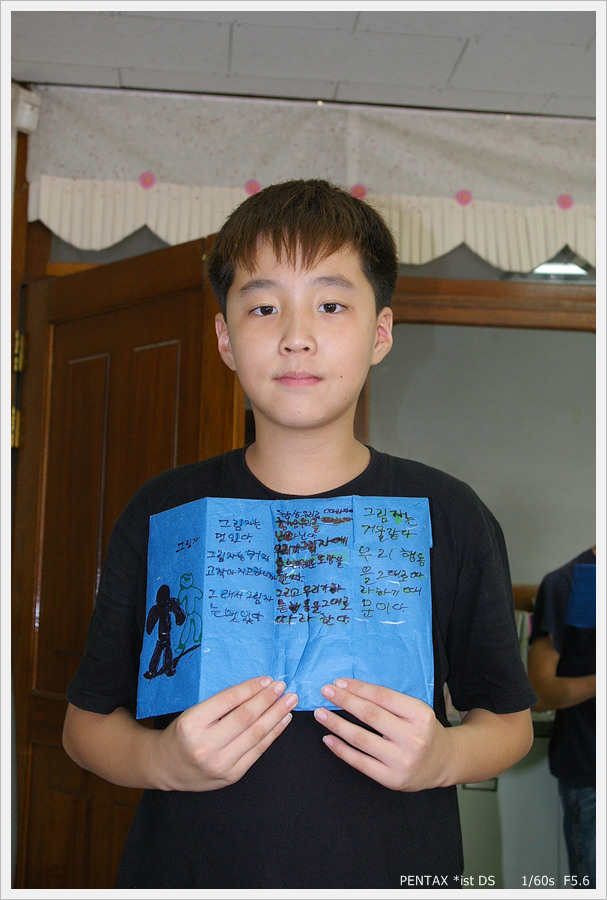 그림자
그림자는
멋있다
그림자는 커지
고 작아지고
그래서 그림자
는 멋있다
항상 우리를
모양을
한다
그리고 우리가 하
는 을 그대로
따라 한다.
그림자는
거울같다
우리 행동
을 그대로 따
라하기 때
문이다
PENTAX *ist DS 1/60s F5.6